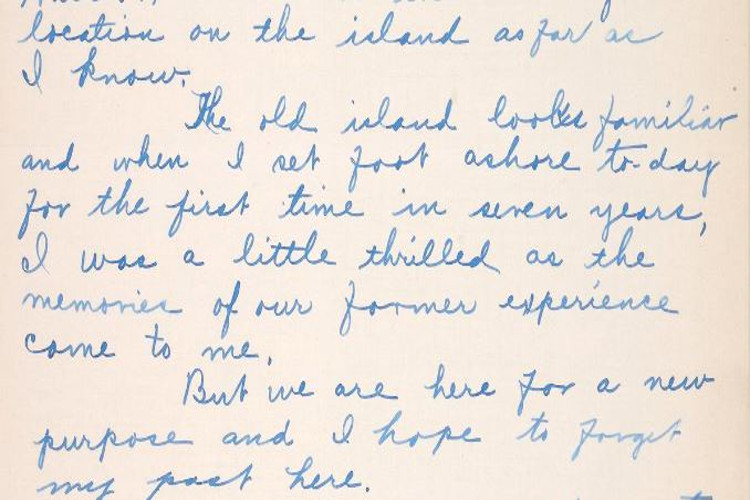 location on the island as far as
I know.
The old island looks familiar
and when I set foot ashore to-day
for the first time in seven years,
I was a little thrilled as the
memories of our former experience
came to me.
But we are here for a new
purpose and I hope to forget
my past here.